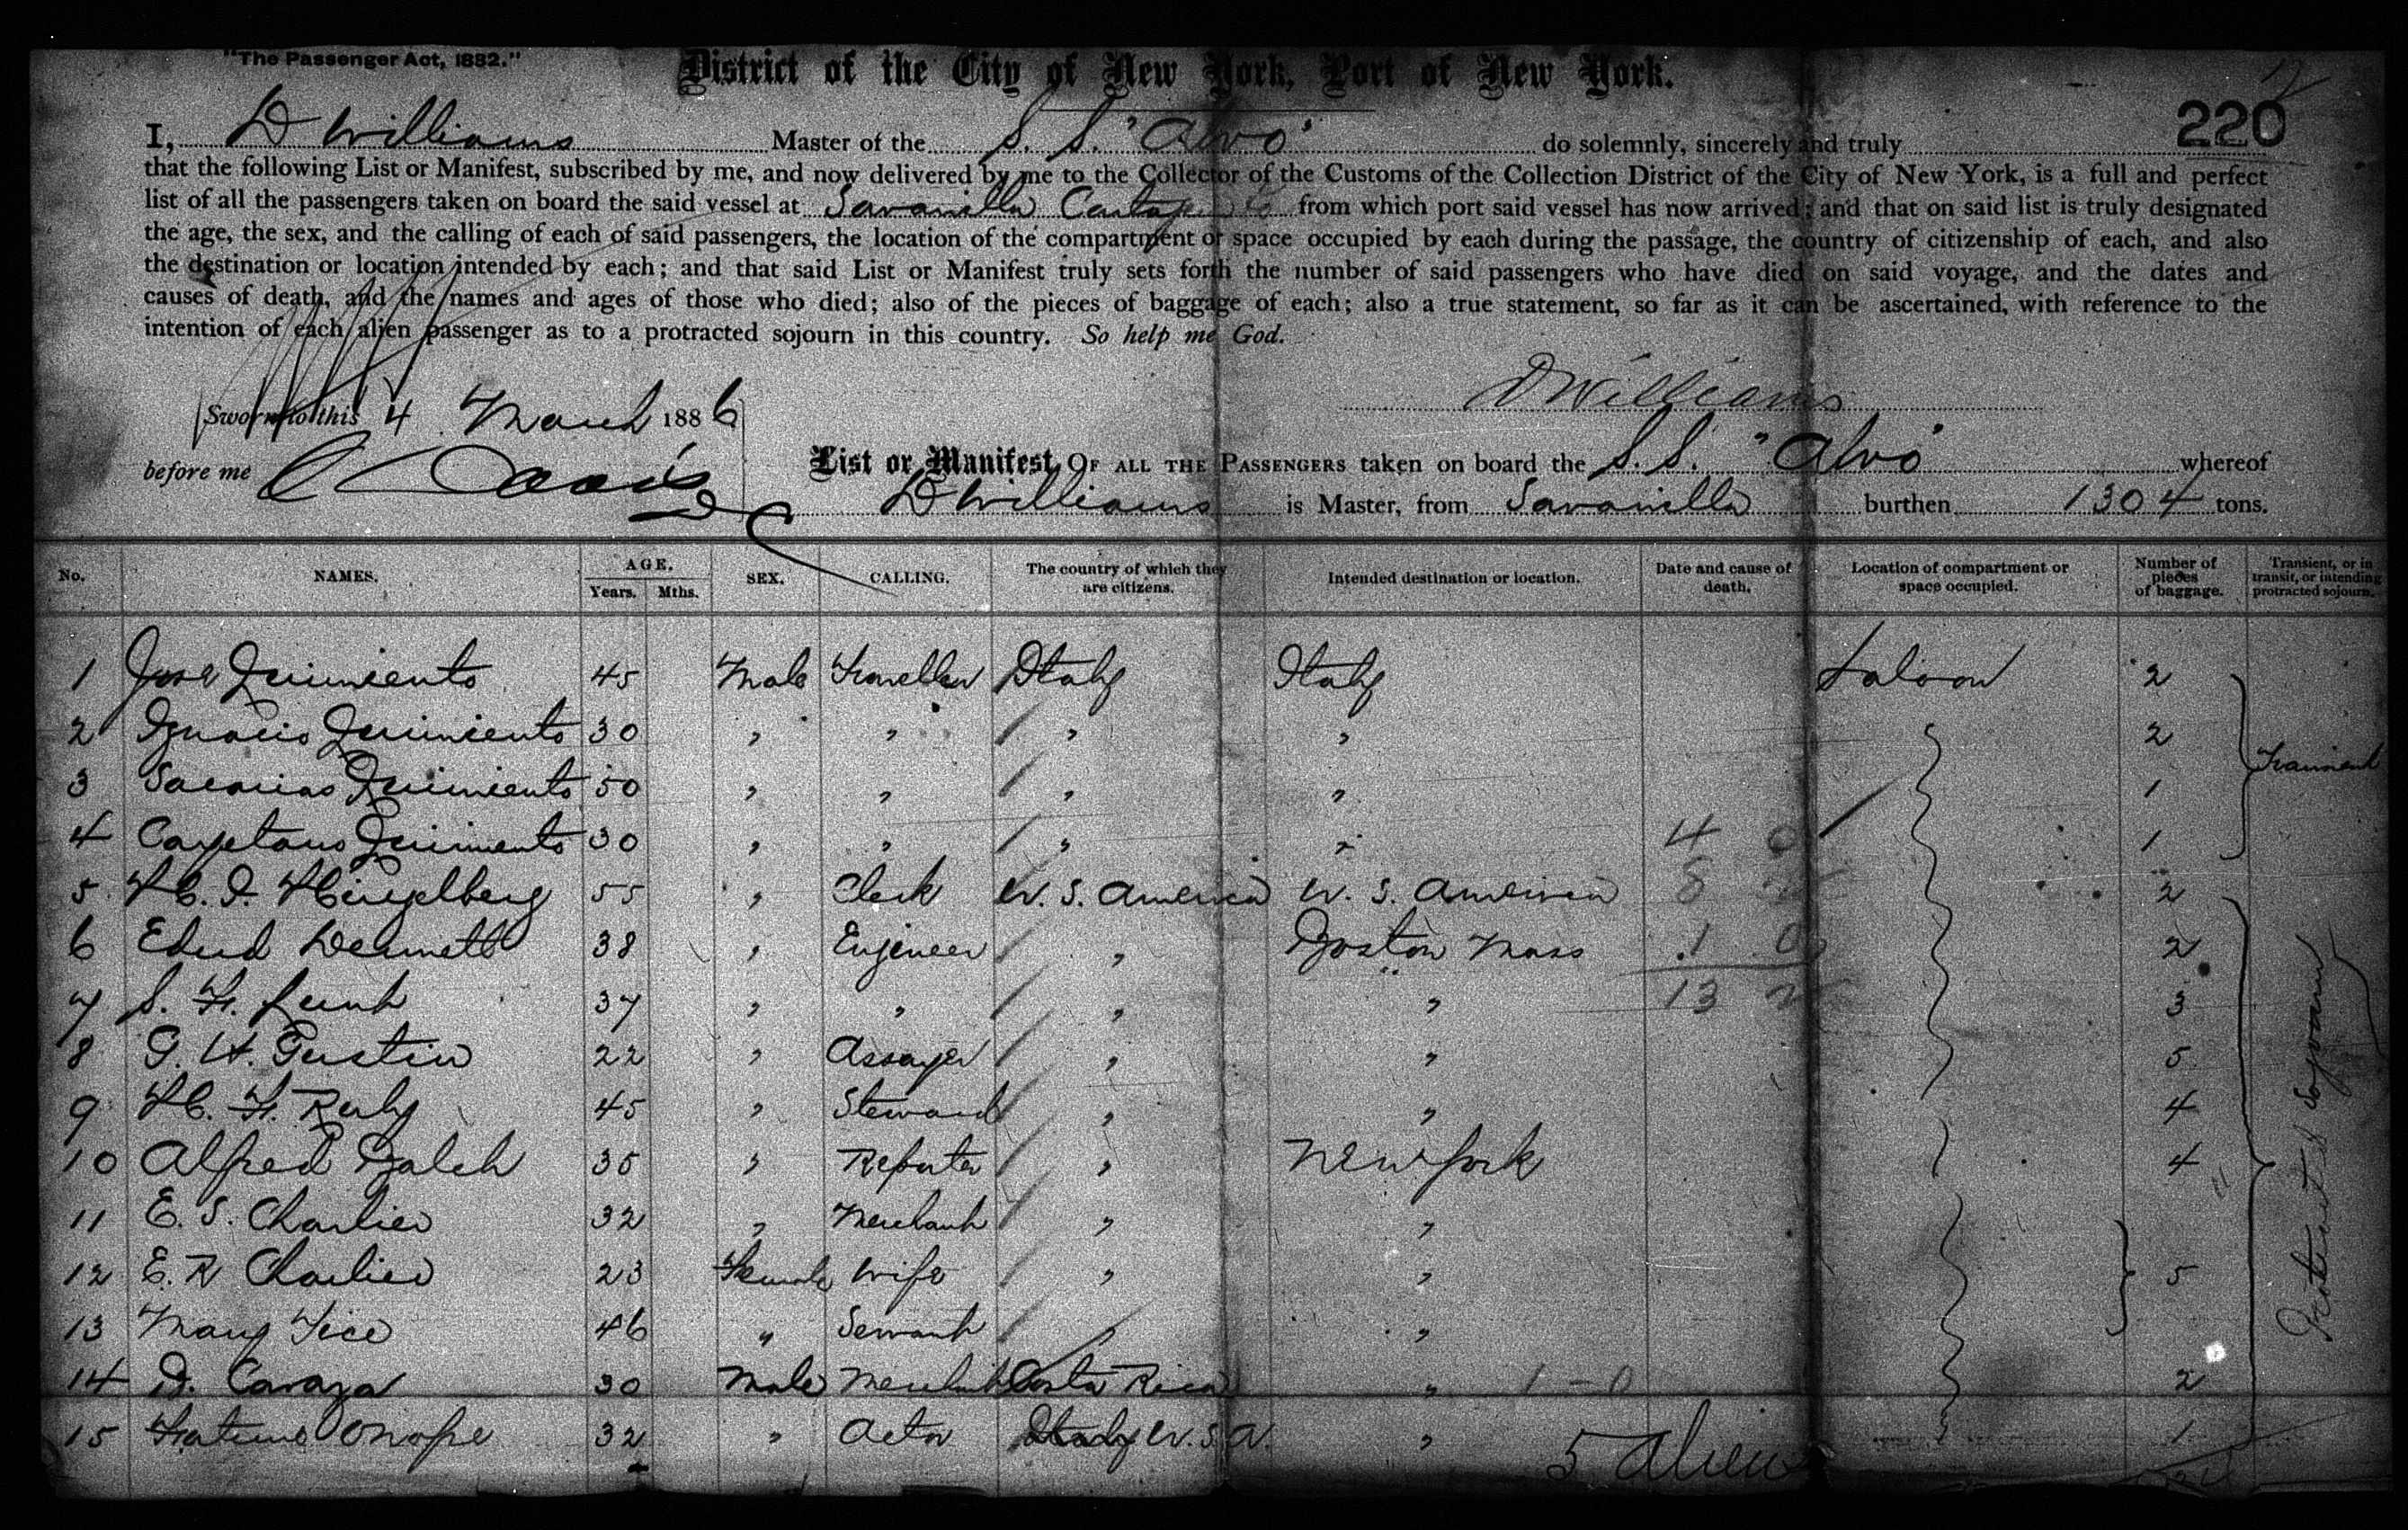 "The Passenger Act, 1882."
District of the City of New York, Port of New York.
220
I, D Williams Master of the S. S. "Alvo" do solemnly, sincerely and truly
that the following List or Manifest, subscribed by me, and now delivered by me to the Collector of the Customs of the Collection District of the City of New York, is a full and perfect
list of all the passengers taken on board the said vessel at Savanilla from which port said vessel has now arrived; and that on said list is truly designated
the age, the sex, and the calling of each of said passengers, the location of the compartment or space occupied by each during the passage, the country of citizenship of each, and also
the destination or location intended by each; and that said List or Manifest truly sets forth the number of said passengers who have died on said voyage, and the dates and
causes of death, and the names and ages of those who died; also of the pieces of baggage of each; also a true statement, so far as it can be ascertained, with reference to the
intention of each alien passenger as to a protracted sojourn in this country. So help me God.
D Williams
Sworn to this 4 March 1886
before me
List or Manifest, OF ALL THE PASSENGERS taken on board the S. S. "Alvo" whereof
D Williams is Master, from Savanilla burthen 1304 tons.
No. NAMES. AGE. Years. Mths. SEX. CALLING. The country of which they are citizens. Intended destination or location. Date and cause of death. Location of compartment or space occupied. Number of pieces of baggage. Transient, or in transit, or intending protracted sojourn.
1 Jose 45 Male Traveller Italy Italy Saloon 2
2 Ignacio 30 " " " " 2
3 50 " " " " 1 Transient
4 Cayetano 30 " " " " 4 0 1
5 55 " Clerk U. S. America U. S. America 8 2
6 Edud Dennett 38 " Engineer " Boston Mass 1 0 2
7 S. F. 37 " " " " 13 3
8 G. H. Gustin 22 " Assayer " " 5
9 45 " Steward " " 4
10 Alfred Balch 35 " Reporter " New York 4
11 E. S. Charlier 32 " Merchant " "
12 E. R Charlier 23 Female Wife " " 5
13 Mary Tice 46 " Servant " "
14 D. Caraza 30 Male Merchant Costa Rica " 1 - 0 2
15 32 " Actor Italy U. S. A. " 1
Protracted Sojourn
5 Alien